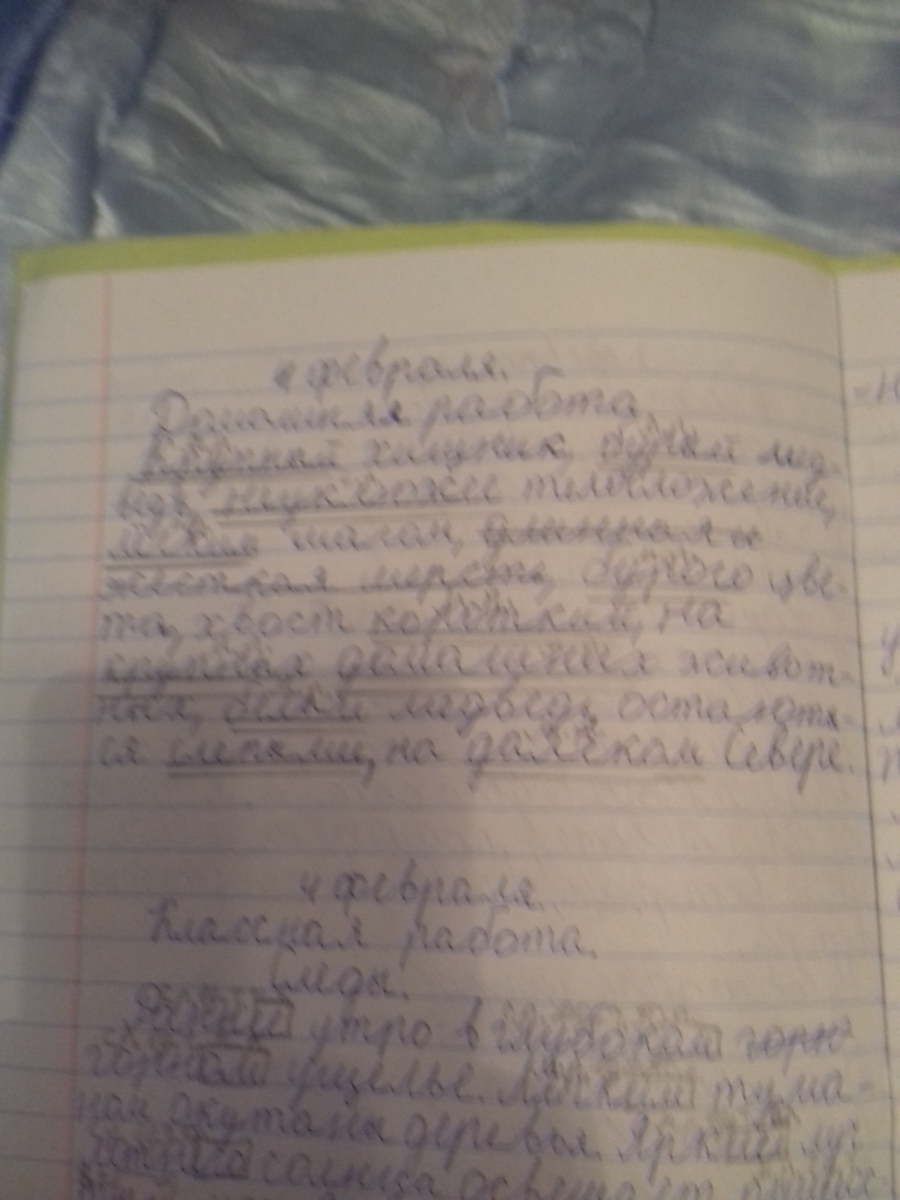 4 февраля.
Домашняя работа.
Крупный хищник, бурый мед-
ведь, неуклюжее телосложение,
легким шагом, длинная и
жесткая шерсть, бурого цве-
та, хвост короткий, на
крупных домашних живот-
ных, белый медведь, остаются
ся слепыми, на далеком Севере.
4 февраля.
Классная работа.
Следы.
утро в глубоком горно
горном ущелье. Легким тума-
ном окутаны деревья. Яркий луч
солнца освещает